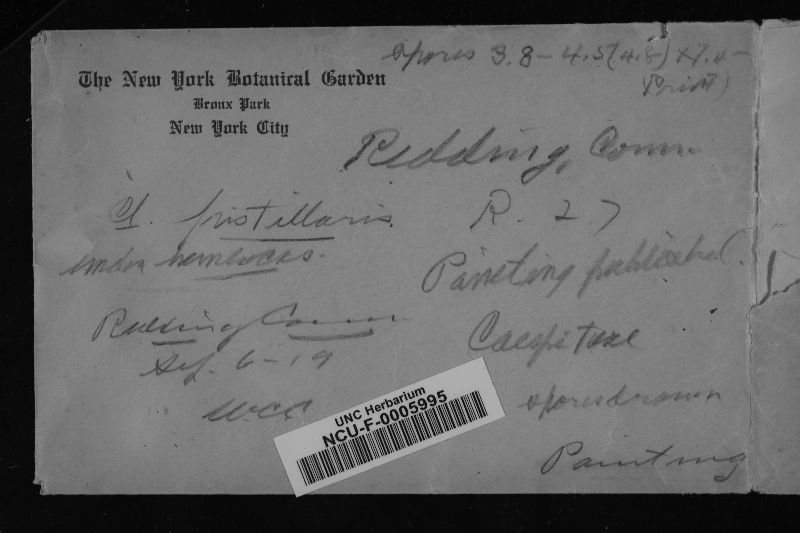 Spores 3.8 – 4.5 (4.8) x 7.4 –
Print)
The New York Botanical Garden
Bronx Park
New York City
Redding, Conn
Cl. pistillaris
R. 27
under hemlocks.
Painting published.
Redding Conn
Caespitose
Sep. 6 – 19
W.C.C.
spores drawn
Painting
UNC Herbarium
NCU-F-0005995